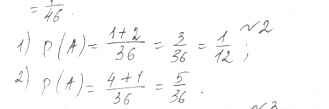 = 1/46.
№2
1) P(A) = (1+2)/36 = 3/36 = 1/12;
2) P(A) = (4+1)/36 = 5/36.